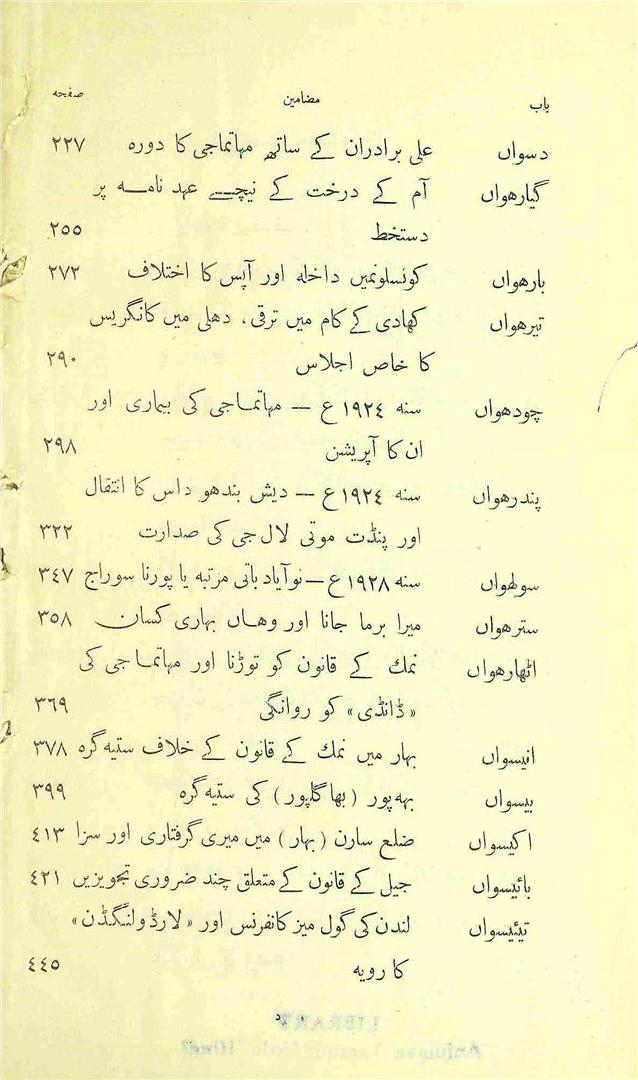 باب مضامین صفحہ
دسواں علی برادران کے ساتھ مہاتماجی کا دورہ ٢٢٧
گیارھواں آم کے درخت کے نیچے عہد نامہ پر
دستخط ٢٥٥
بارھواں کونسلونمیں داخلہ اور آپس کا اختلاف ٢٧٢
تیرھواں کھادی کے کام میں ترقی، دھلی میں کانگریس
کا خاص اجلاس ٢٩٠
چودھواں سنہ ١٩٢٤ع — مہاتماجی کی بیماری اور
ان کا آپریشن ٢٩٨
پندرھواں سنہ ١٩٢٤ع — دیش بندھو داس کا انتقال
اور پنڈت موتی لال جی کی صدارت ٣٢٢
سولھواں سنہ ١٩٢٨ع — نوآبادیاتی مرتبہ یا پورنا سوراج ٣٤٧
سترھواں میرا برما جانا اور وھاں بہاری کسان ٣٥٨
اٹھارھواں نمك کے قانون کو توڑنا اور مہاتما جی کی
«ڈانڈی» کو روانگی ٣٦٩
انیسواں بہار میں نمك کے قانون کے خلاف ستیہ گرہ ٣٧٨
بیسواں بہہ پور (بھاگلپور) کی ستیہ گرہ ٣٩٩
اکیسواں ضلع سارن (بہار) میں میری گرفتاری اور سزا ٤١٣
بائیسواں جیل کے قانون کے متعلق چند ضروری تجویزیں ٤٢١
تیئیسواں لندن کی گول میز کانفرنس اور «لارڈ ولنگڈن»
کا رویہ ٤٤٥